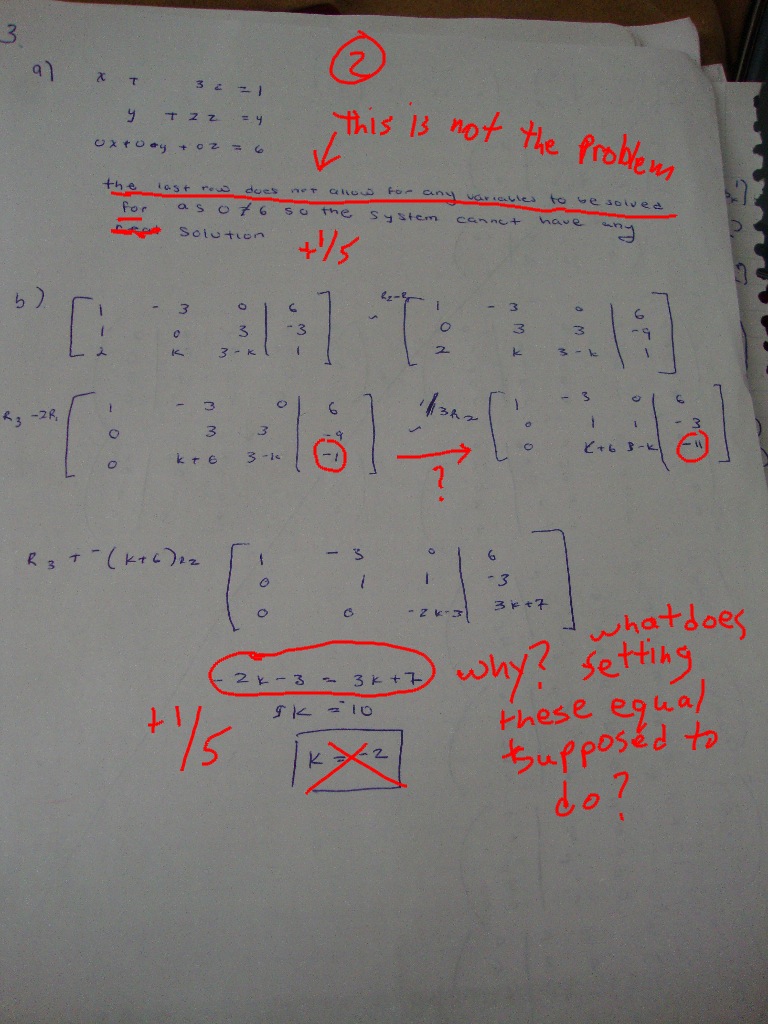 3.
②
a) x + 3z = 1
y + 2z = 4
0x + 0y + 0z = 6
this is not the problem
the last row does not allow for any variables to be solved
for as 0 ≠ 6 so the system cannot have any
solution
+1/5
b) [ 1 -3 0 | 6 ] ~ R2-R1 [ 1 -3 0 | 6 ]
[ 1 0 3 | -3 ] [ 0 3 3 | -9 ]
[ 2 k 3-k | 1 ] [ 2 k 3-k | 1 ]
R3 -2R1 [ 1 -3 0 | 6 ] ~ 1/3R2 [ 1 -3 0 | 6 ]
[ 0 3 3 | -9 ] [ 0 1 1 | -3 ]
[ 0 k+6 3-k | -1 ] [ 0 k+6 3-k | -11 ]
?
R3 + -(k+6)R2 [ 1 -3 0 | 6 ]
[ 0 1 1 | -3 ]
[ 0 0 -2k-3 | 3k+7 ]
-2k-3 = 3k+7
5k = -10
k = -2
+1/5
why? what does
setting
these equal
supposed to
do?